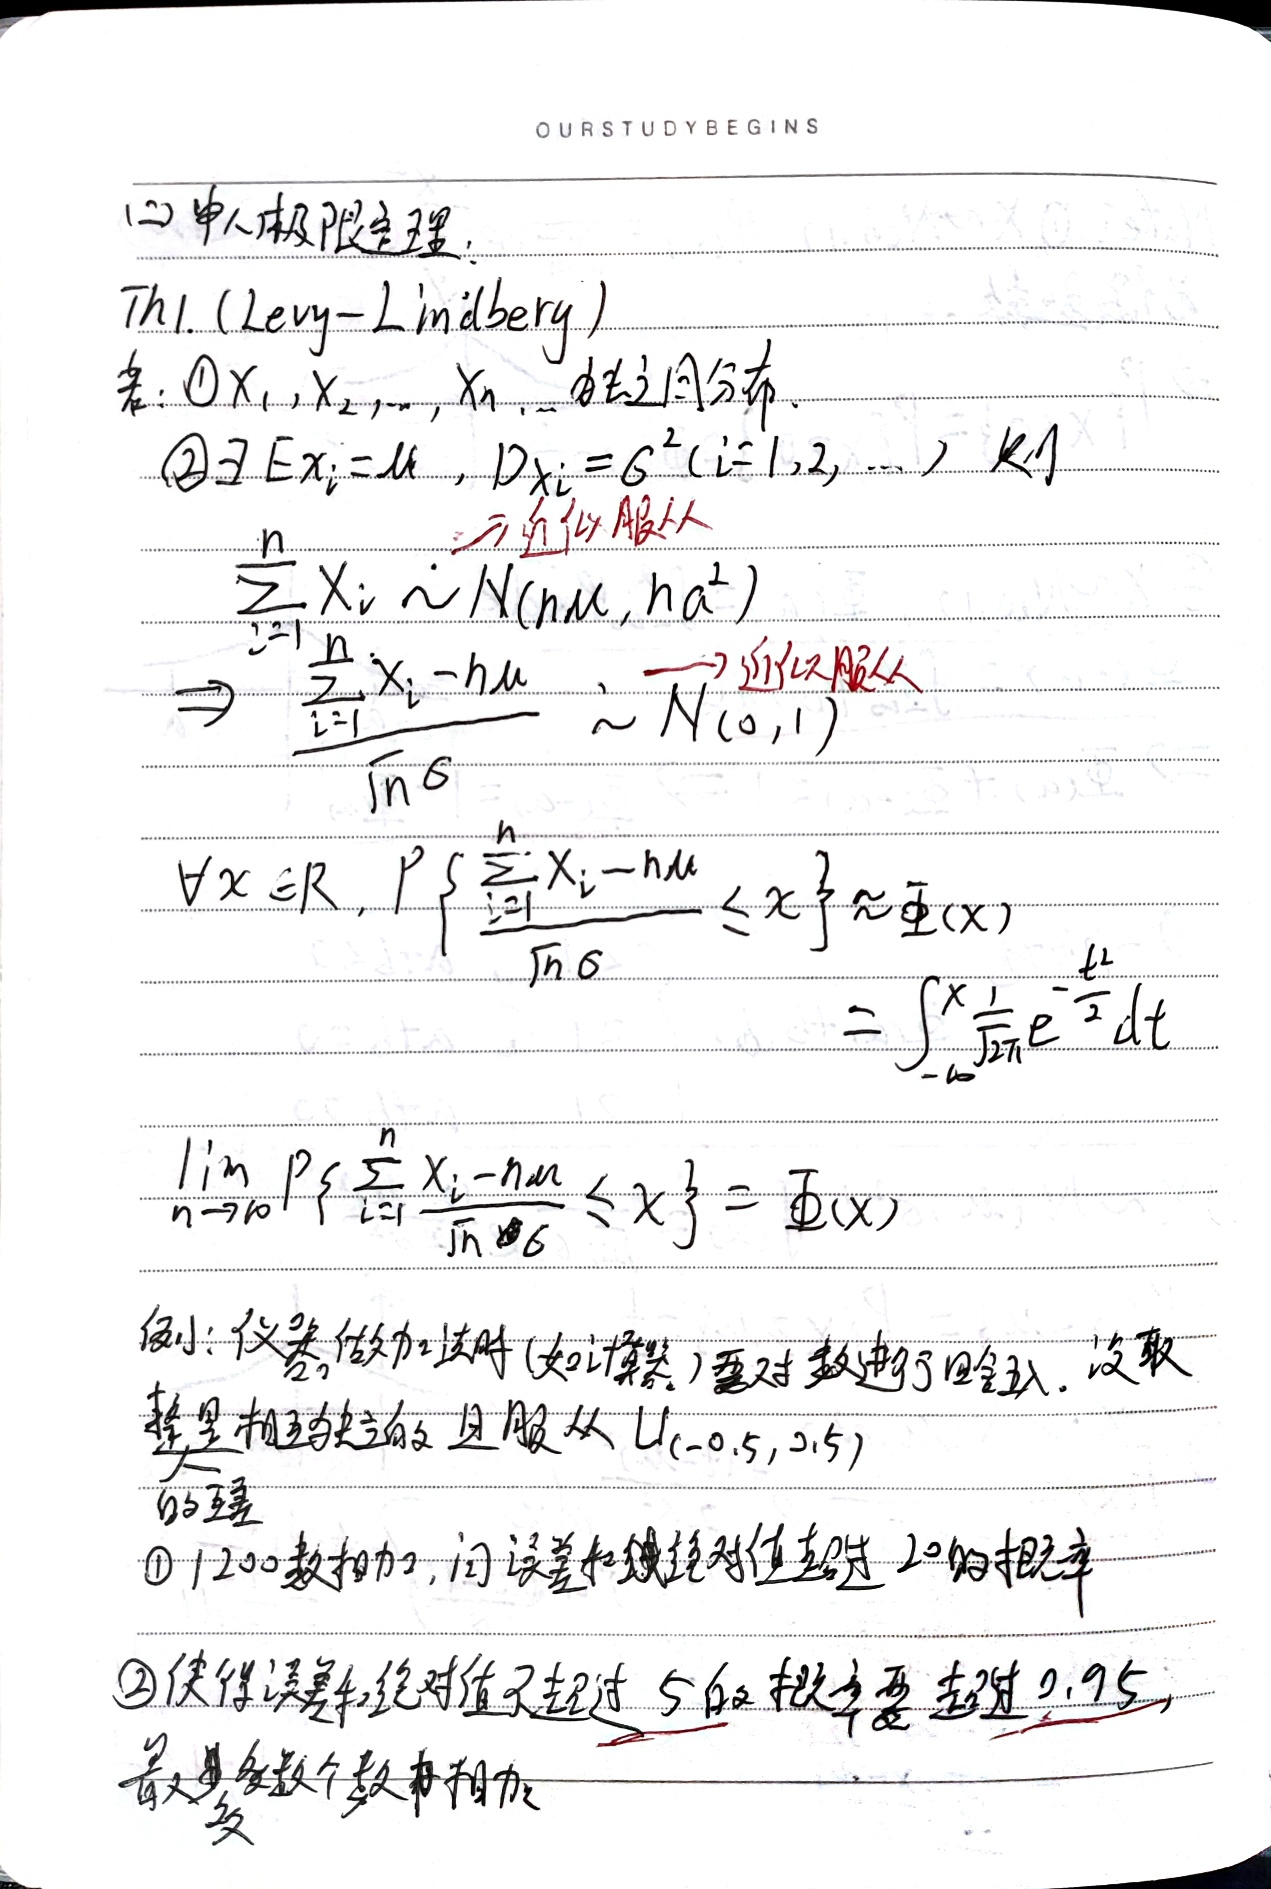 OURSTUDYBEGINS
(二) 中心极限定理:
Th1. (Levy-Lindberg)
若: ① X₁, X₂, …, Xn, … 独立同分布.
② ∃ EXi = μ, DXi = σ² (i=1,2, …) 则
→ 近似服从
∑(i=1→n) Xi ~ N(nμ, nσ²)
→ 近似服从
⇒ (∑(i=1→n) Xi - nμ) / (√n σ) ~ N(0,1)
∀x∈R, P{ (∑(i=1→n) Xi - nμ) / (√n σ) ≤ x } ≈ Φ(x)
= ∫(-∞→x) 1/√2π e^(-t²/2) dt
lim(n→∞) P{ ∑(i=1→n) (Xi - nμ) / (√n σ) ≤ x } = Φ(x)
例1: 仪器做加法时(如计算器)要对数进行四舍五入. 设取
整 是相互独立的 且服从 U(-0.5, 0.5)
的误差
① 1200数相加, 问误差和 绝对值超过 20的概率
② 使得误差和绝对值不超过 5的概率要超过 0.95,
最 多 数个数 相加